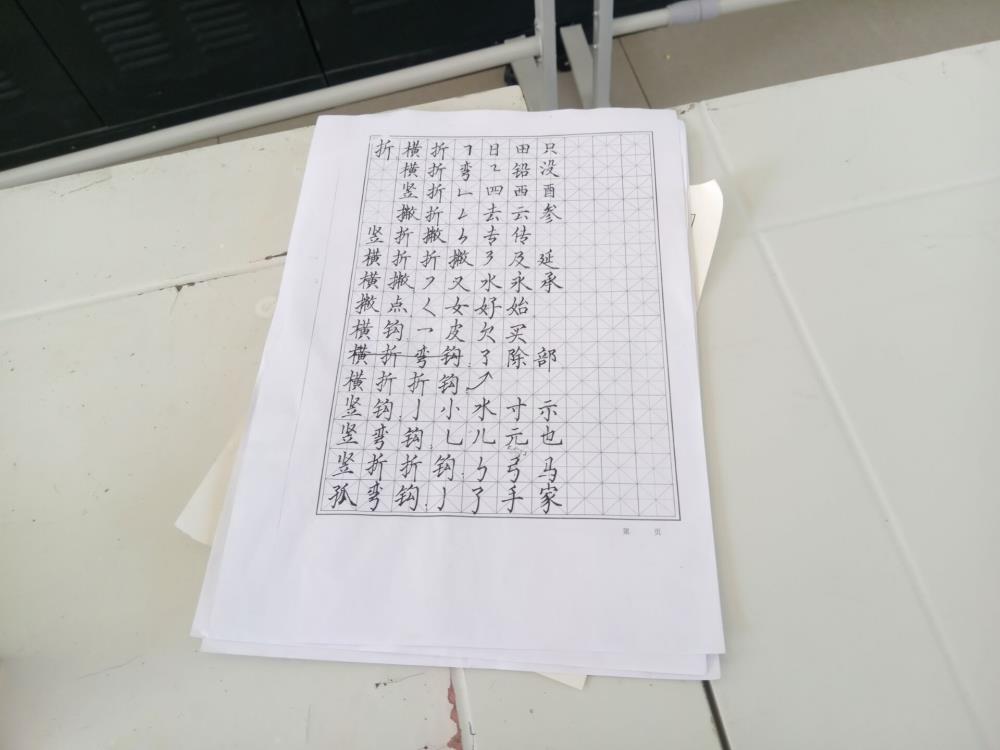 折 横折 ㇕ 日田只
横折弯 ㇍ 四铅没
竖折 ㇗ 四西酉
撇折 ㇜ 去云参
竖折撇 ㄣ 专传
横折折撇 ㇋ 及延
横撇 ㇇ 又水永承
撇点 ㇛ 女好始
横钩 ㇖ 皮欠买
横折弯钩 ㇌ 除部
横折折钩
竖钩 亅 小水寸示
竖弯钩 乚 儿元也
竖折折钩 ㇉ 弓马
弧弯钩 ㇁ 了手家
第 页